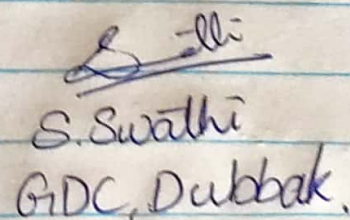 S. Swathi
GDC, Dubbak.